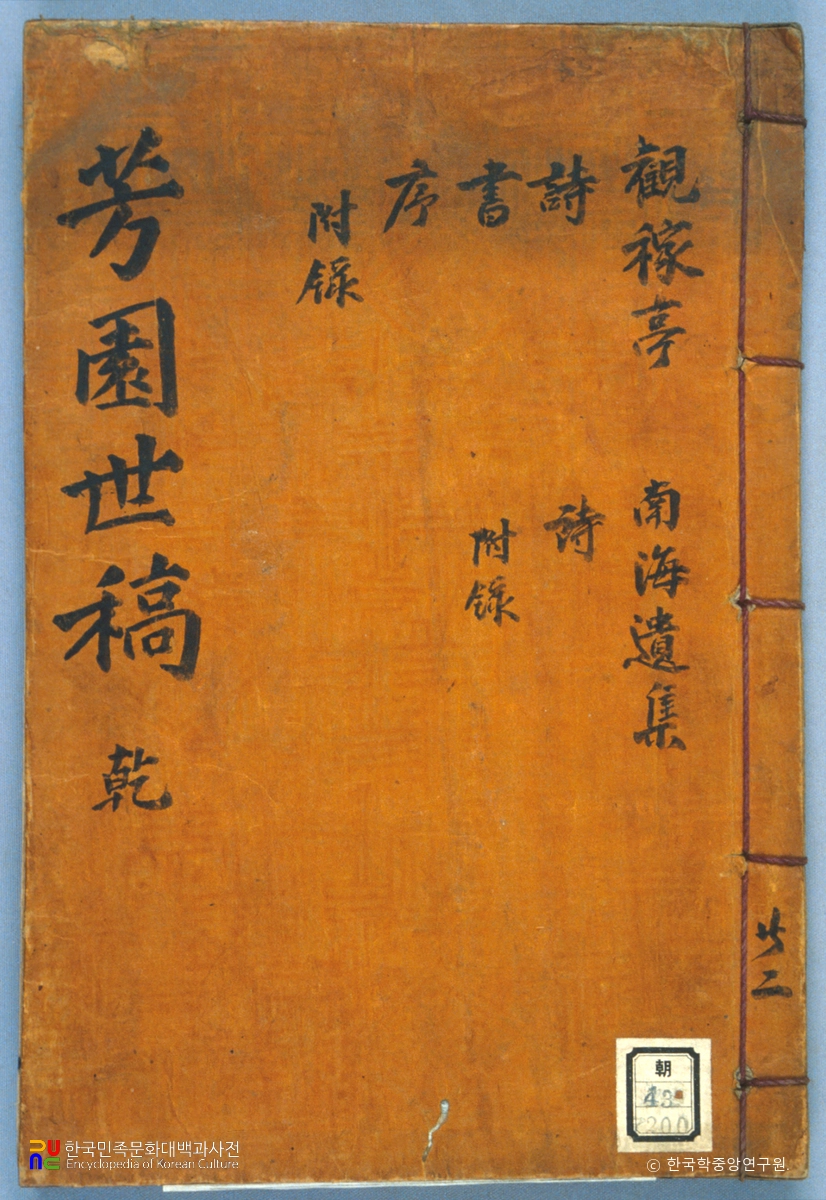 芳園世稿 乾
觀稼亭
詩
書
序
附錄
南海遺集
詩
附錄
共二
朝
43
한국민족문화대백과사전
Encyclopedia of Korean Culture
© 한국학중앙연구원